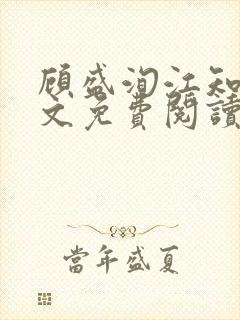 顾盛洵江知
文免費閱讀
當年盛夏